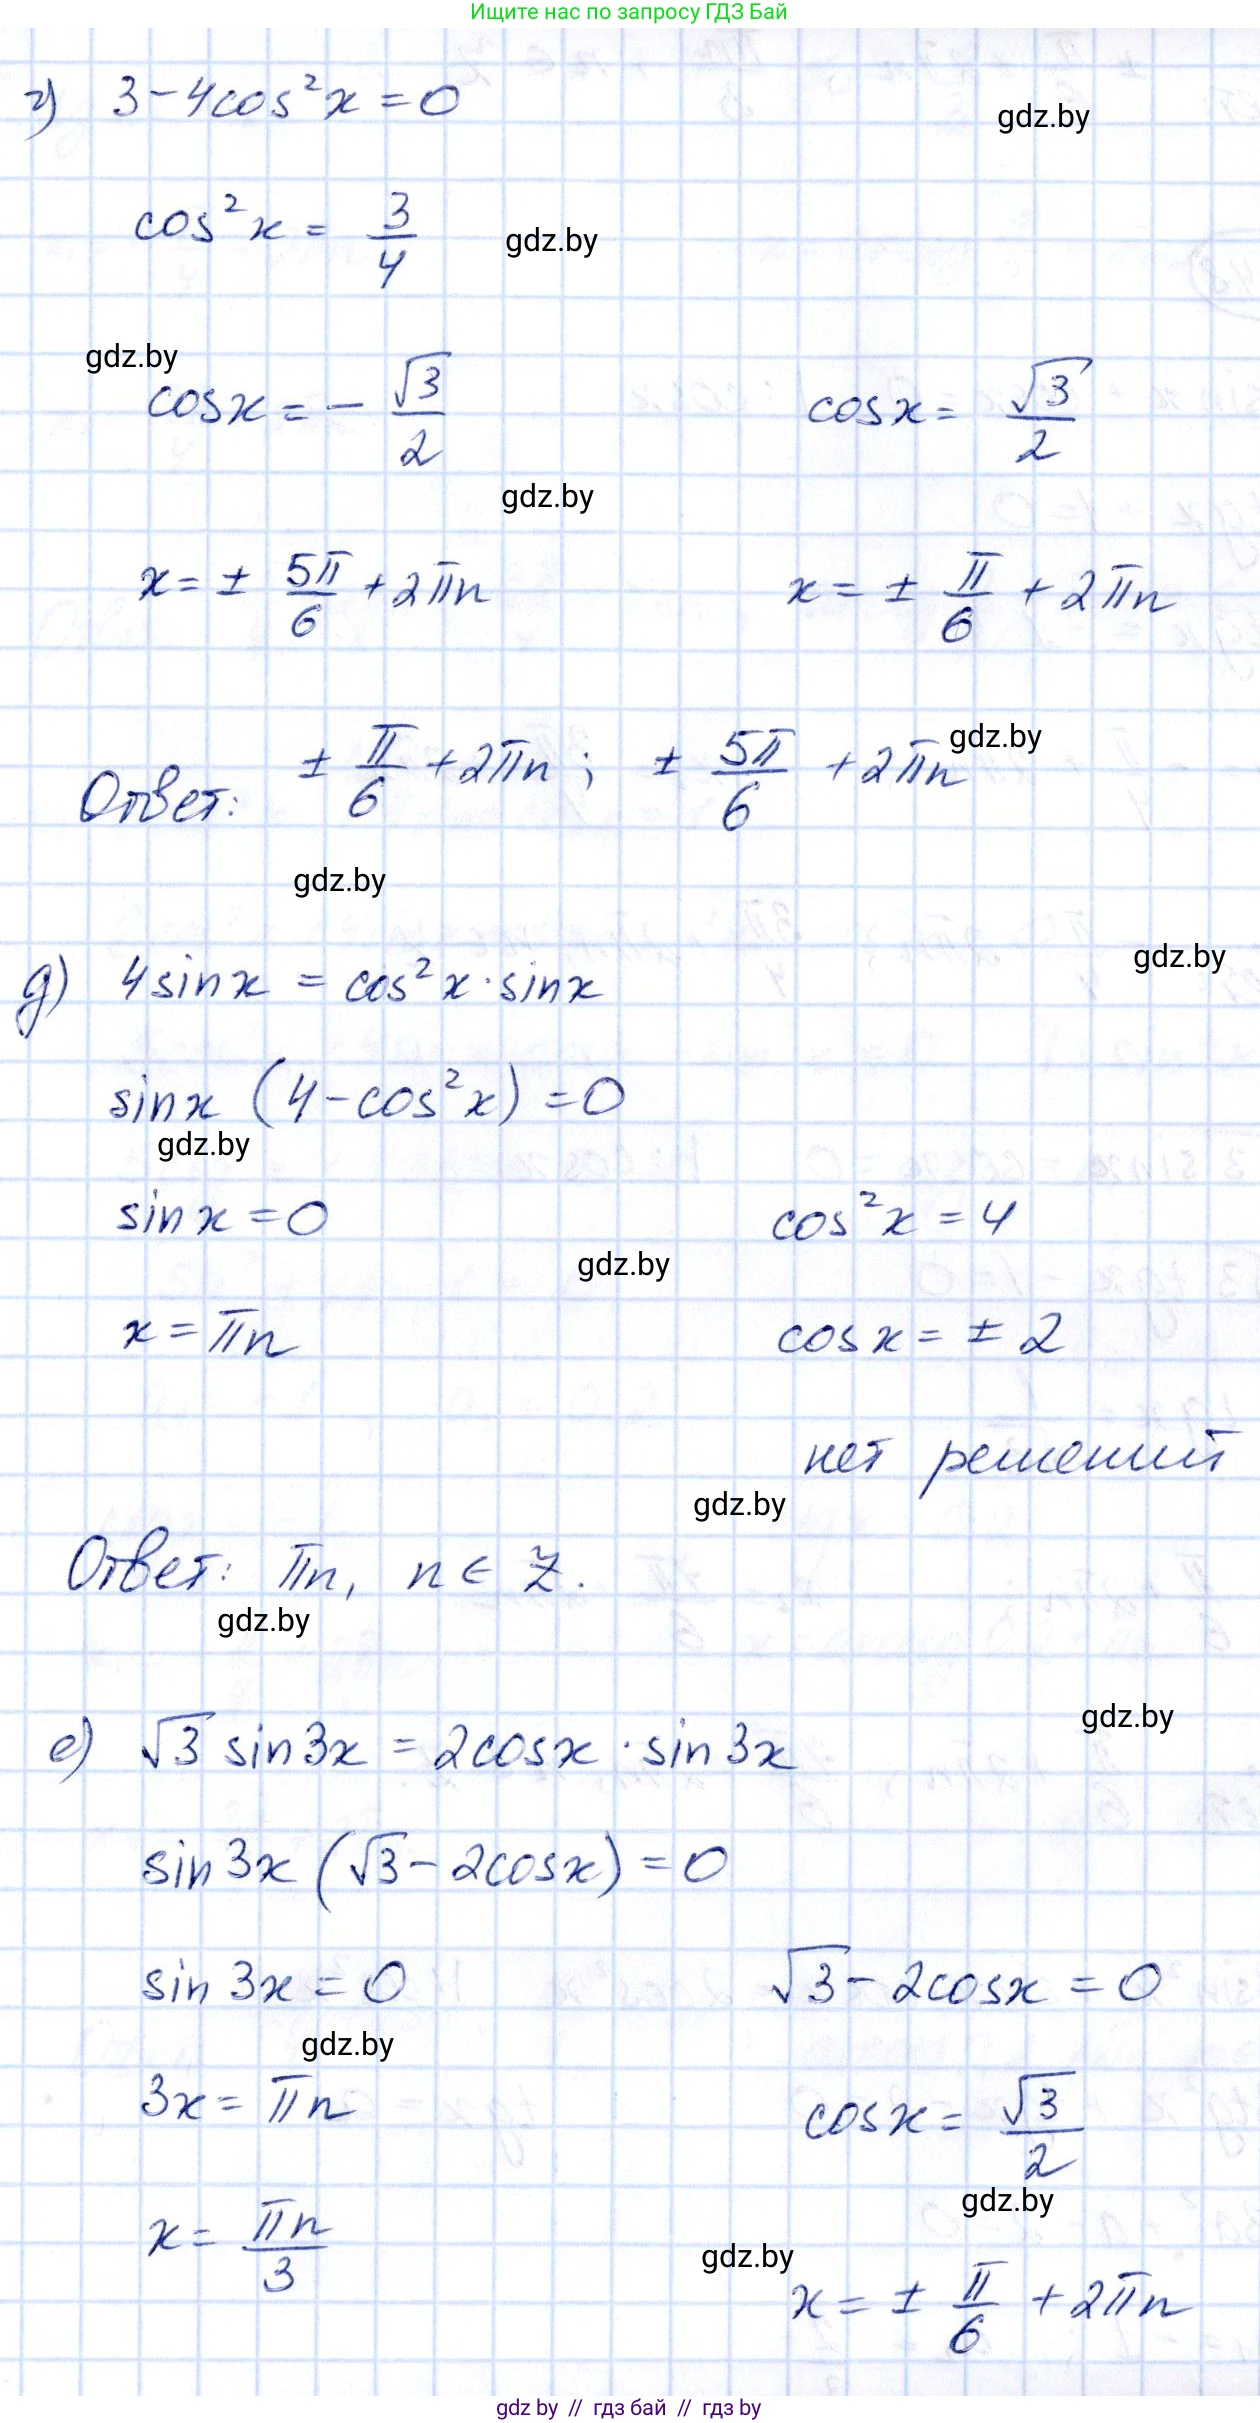 Ищите нас по запросу ГДЗ Бай
г) 3-4cos²x=0
gdz.by
cos²x = 3/4
gdz.by
gdz.by
cosx = - √3/2 cosx = √3/2
gdz.by
x = ± 5π/6 + 2πn x = ± π/6 + 2πn
gdz.by
Ответ: ± π/6 + 2πn; ± 5π/6 + 2πn
gdz.by
gdz.by
д) 4sinx = cos²x·sinx
sinx (4-cos²x) =0
gdz.by
sinx =0 cos²x =4
gdz.by
x = πn cosx = ± 2
нет решений
gdz.by
Ответ: πn, n ∈ Z.
gdz.by
gdz.by
е) √3 sin3x = 2cosx · sin3x
sin3x (√3 - 2cosx) = 0
sin3x = 0 √3 - 2cosx = 0
gdz.by
3x = πn cosx = √3/2
gdz.by
x = πn/3
gdz.by
x = ± π/6 + 2πn
gdz by // гдз бай // гдз by